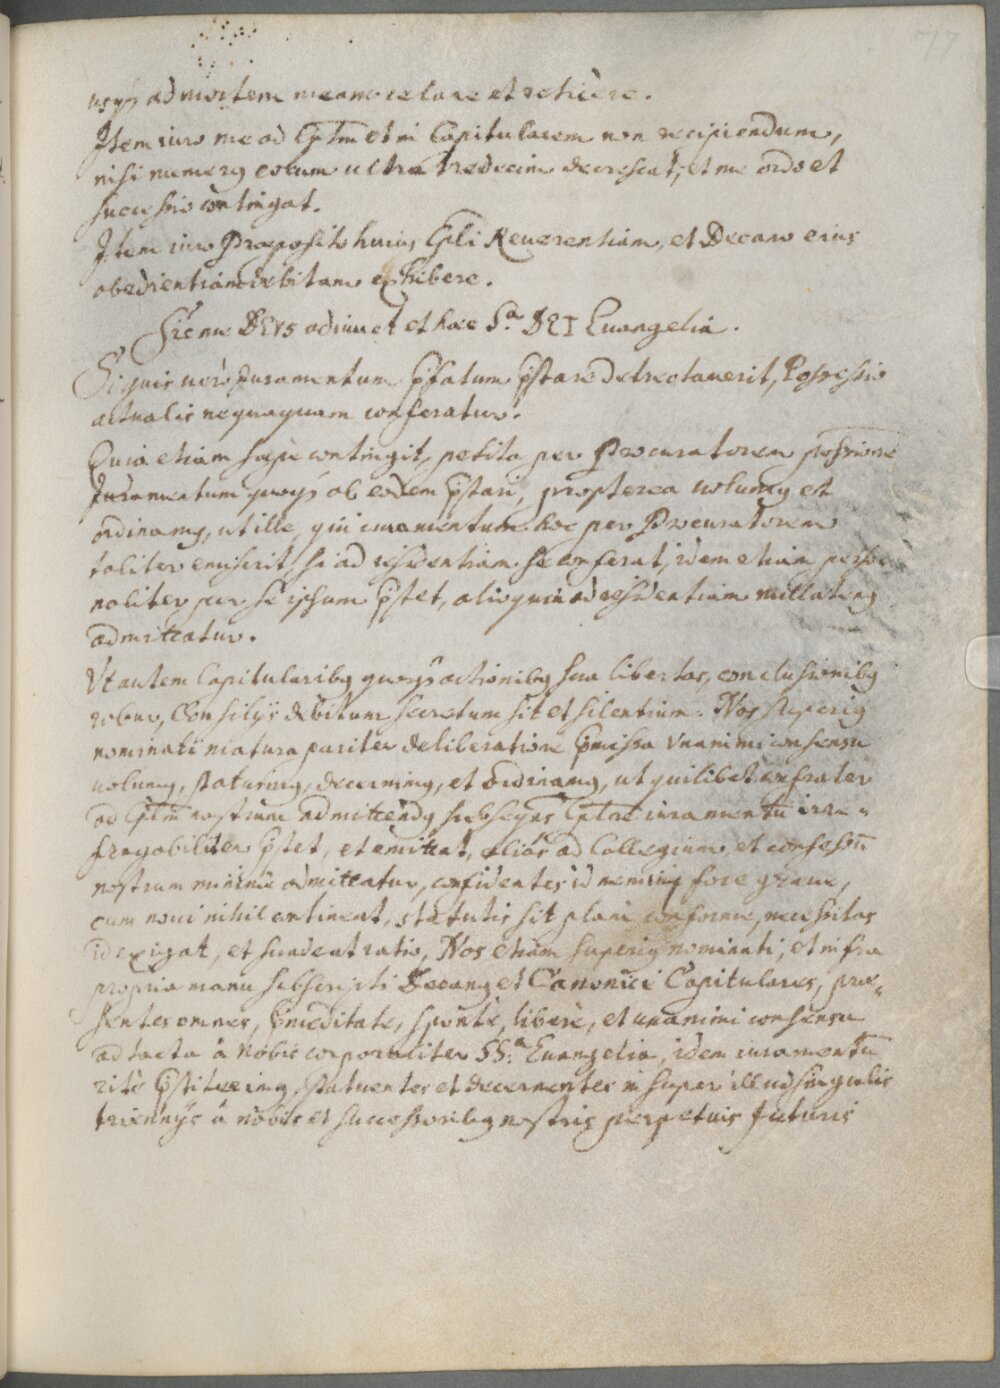 usq3 ad mortem meam celare et reticere.
Item iuro me ad Cptm et in Capitularem non recipiendum,
nisi numerq eorum ultra tredecim decrescat; et me ordo et
successio contingat.
Item iuro Præposito huius Ecpli Reuerentiam, et Decano eius
obedientiam debitam exhibere.
Sic me DEVS adiuuet et hæc S.a DEI Euangelia.
Si quis uerò Iuramentum pfatum pstare detrectauerit, Possessio
actualis nequaquam conferatur.
Quia etiam sæpè contingit, petita per Procuratorem possessione
Iuramentum quoq3 ab eodem pstari, propterea uolumq et
ordinamq, ut ille, qui iuramentum hoc per Procuratorem
taliter emiserit, si ad residentiam se conferat, idem etiam perso-
naliter per se ipsum pstet, alioquin ad residentiam nullatenq
admittatur.
Vt autem Capitularibq quoq3 actionibq sua libertas, conclusionibq
robur, Consilijs debitum secretum sit et silentium. Nos superiq
nominati matura pariter deliberatione pmissa vnanimi consensu
uolumq, statuimq, decernimq, et ordinamq, ut quilibet confrater
ad Cptm nostrum admittendq subseqns Cptlare iuramentu irre-
fragabiliter pstet, et emittat, aliàs ad Collegium et consessu
nostrum minimè admittatur, confidentes id nemini fore graue,
cum noui nihil contineat, statutis sit planè conforme, necessitas
id exigat, et suadeat ratio, Nos etiam superiq nominati, et infra
propria manu subscripti Decanq et Canonici Capitulares, præ-
sentes omnes, pmeditatè, spontè, liberè, et unanimi consensu
ad tacta à Nobis corporaliter SS.a Euangelia, idem iuramentu
ritè pstitimq, statuentes et decernentes insuper illud singulis
triennijs à nobis et successoribq nostris perpetuis futuris